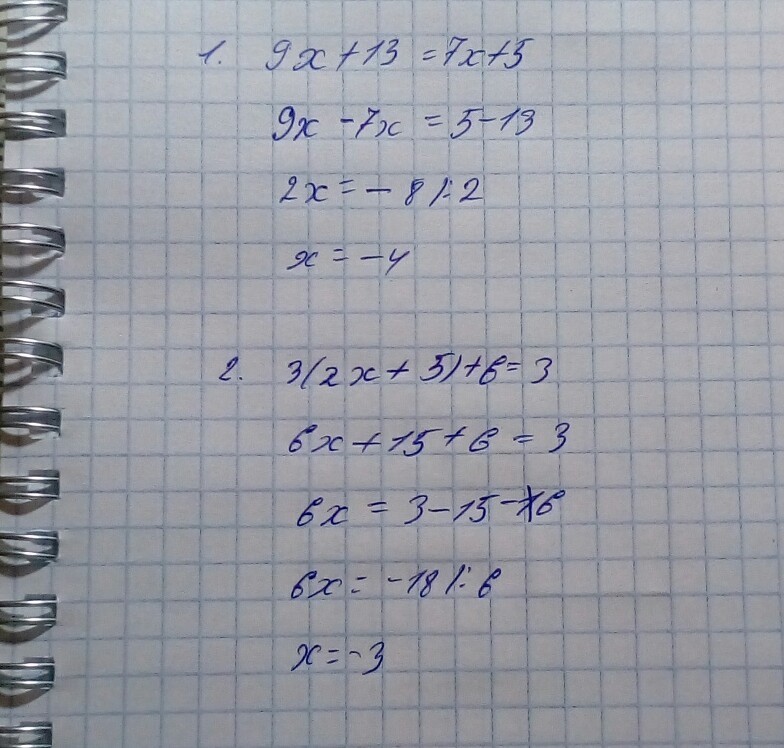 1. 9x+13=7x+5
9x-7x=5-13
2x=-8 |:2
x=-4
2. 3(2x+5)+6=3
6x+15+6=3
6x=3-15-6
6x=-18 |:6
x=-3